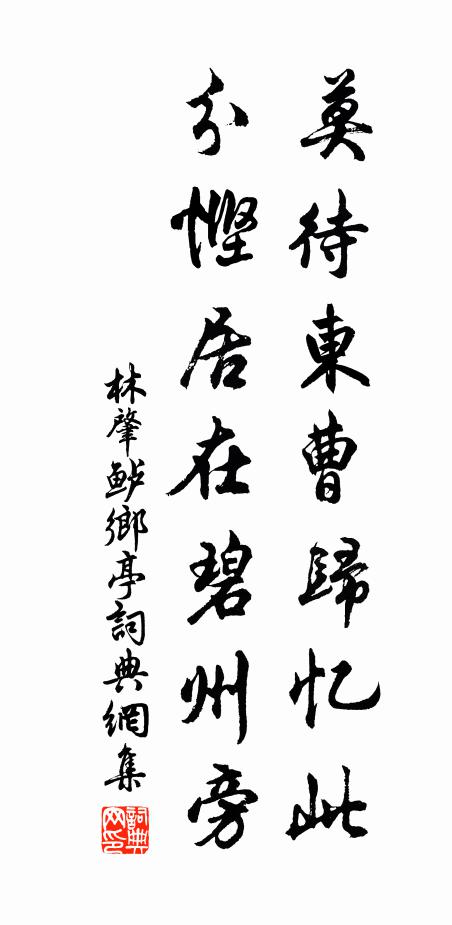 莫待東曹歸忆此
分慳居在碧州旁
林肇鲈鄉亭詞典網集
詞典网印